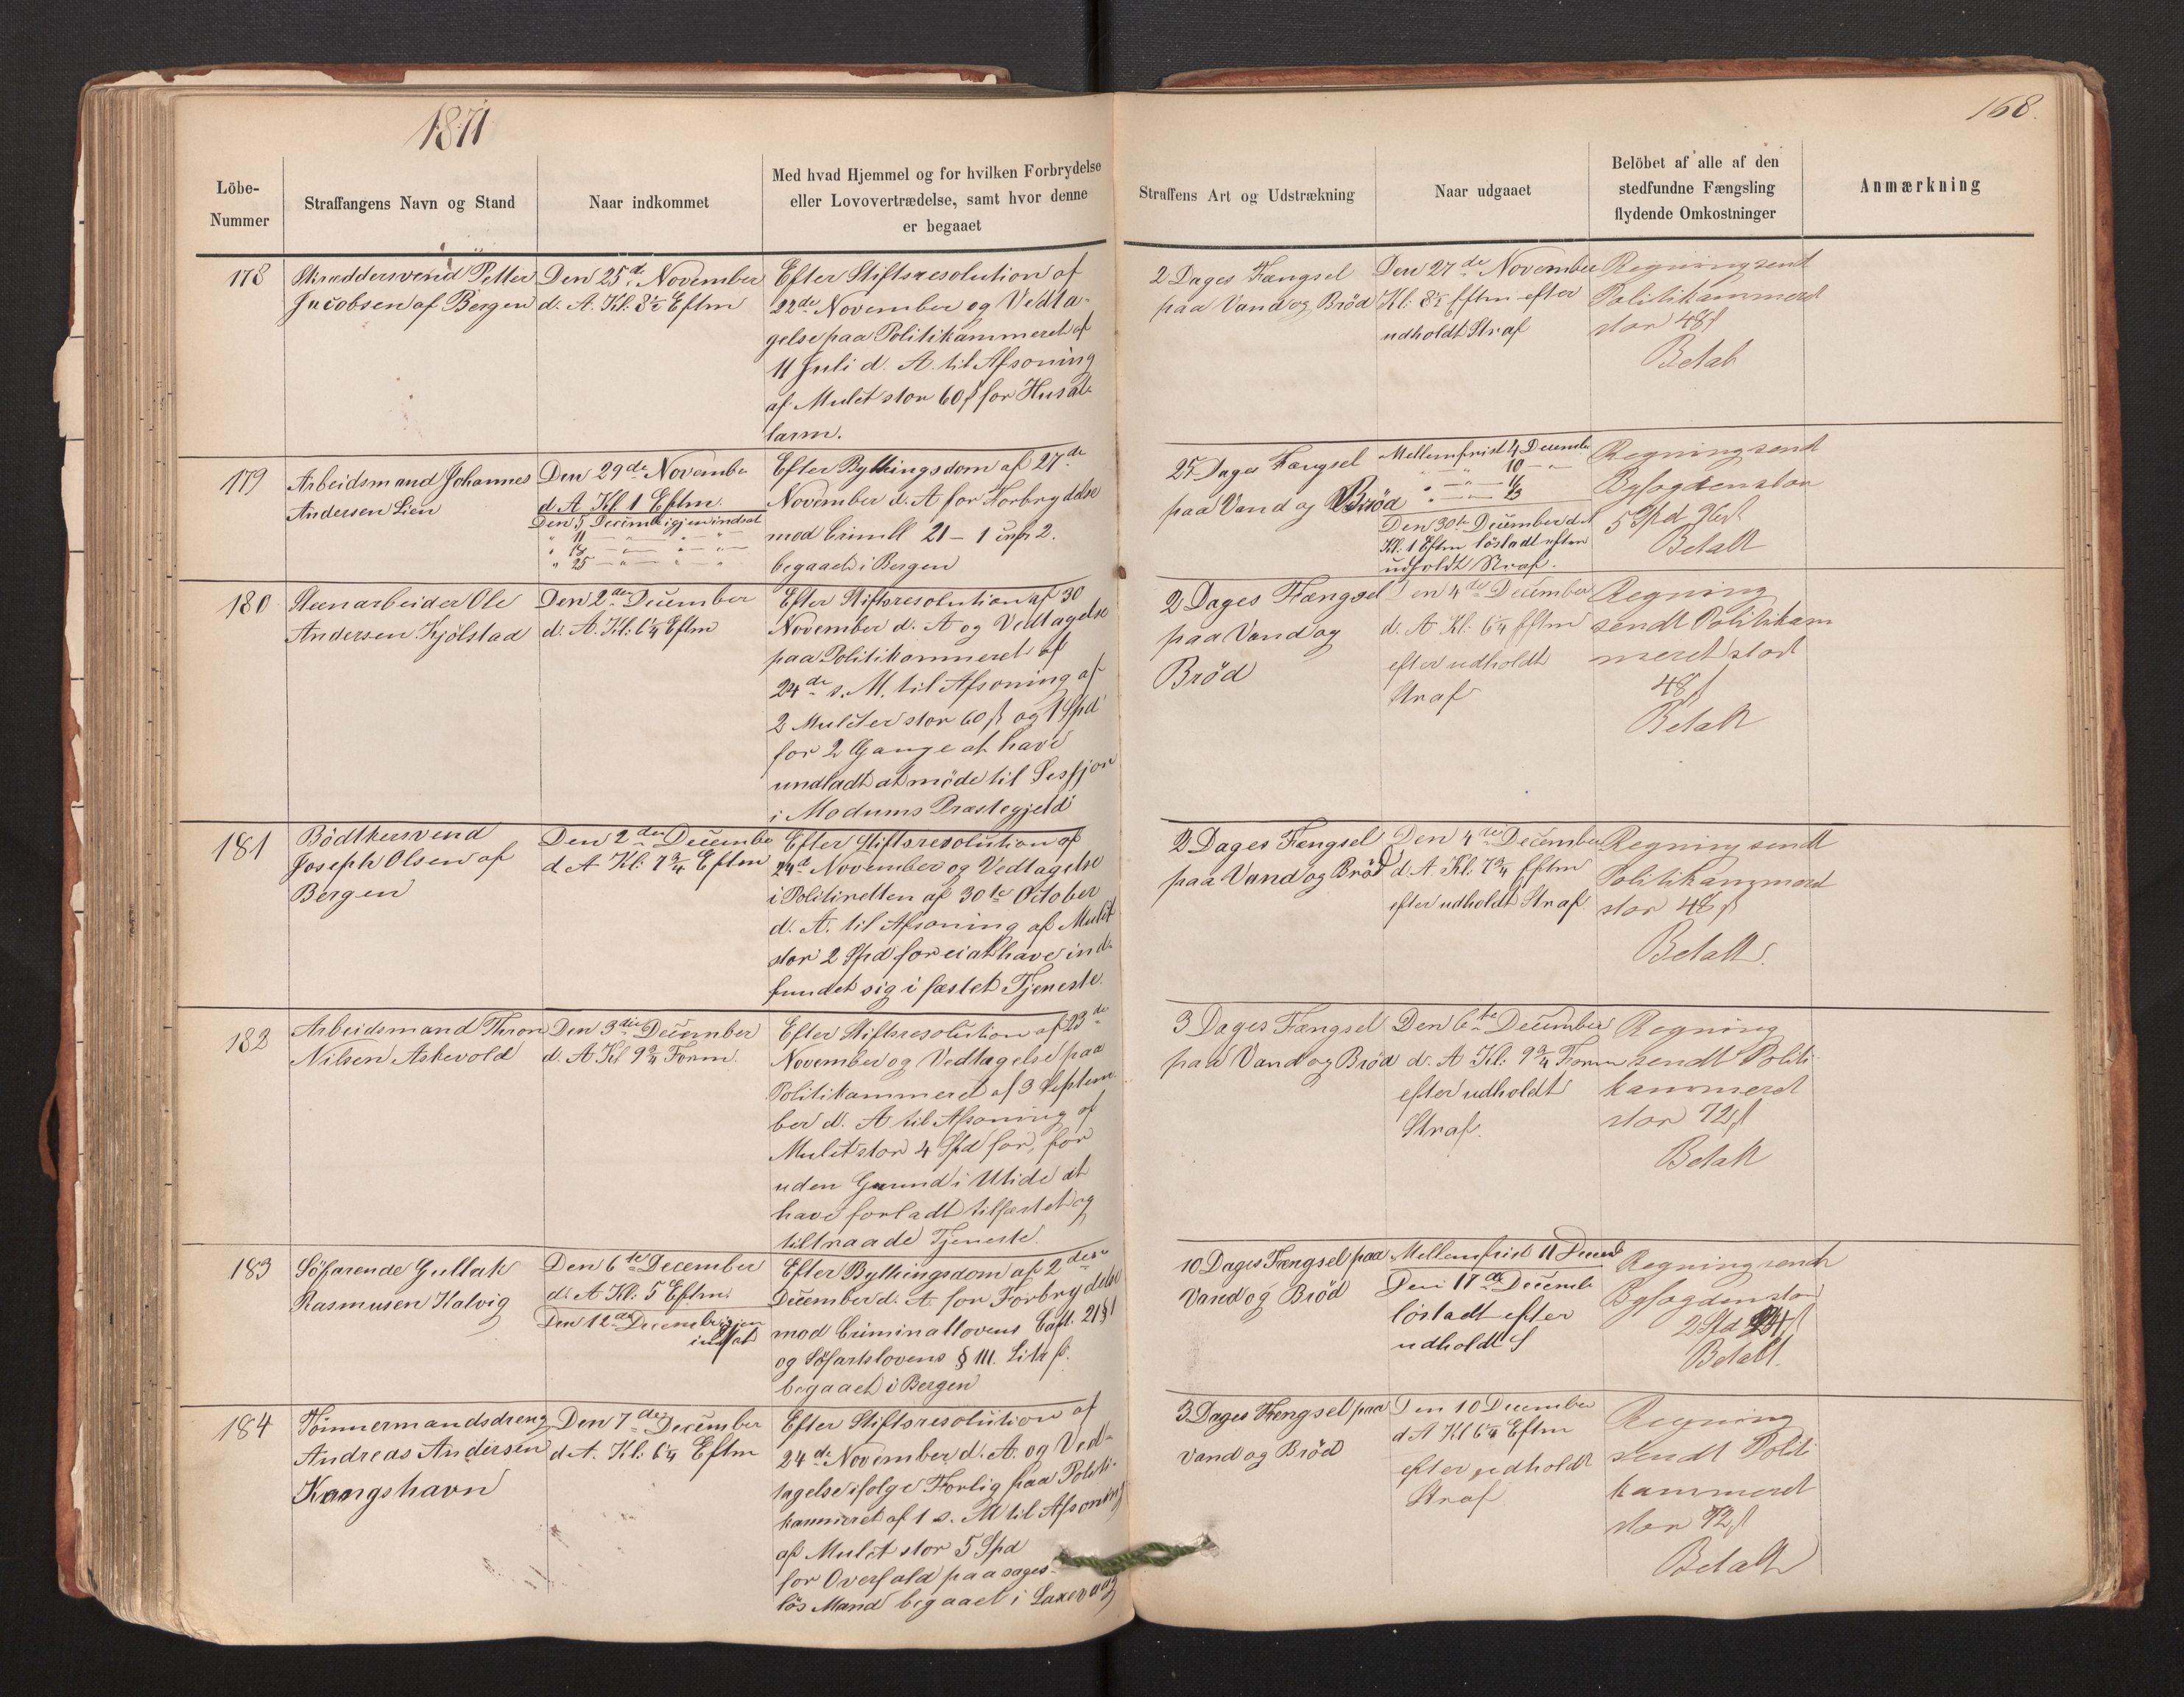 1871
168.
Löbe-
Nummer
Straffangens Navn og Stand
Naar indkommet
Med hvad Hjemmel og for hvilken Forbrydelse
eller Lovovertrædelse, samt hvor denne
er begaaet
Straffens Art og Udstrækning
Naar udgaaet
Belöbet af alle af den
stedfundne Fængsling
flydende Omkostninger
Anmærkning
178
Skræddersvend Petter
Jacobsen af Bergen
Den 25de November
d. A. Kl: 8½ Eftm
Efter Stiftsresolution af
22de November og Vedta-
gelse paa Politikammeret af
11 Juli d. A. til Afsoning
af Mulct stor 60 ß for Husal-
larm.
2 Dages Fængsel
paa Vand og Bröd
Den 27de November
Kl: 8½ Eftm efter
udholdt Straf
Regning sendt
Politikammeret
stor 48 ß
Betalt
179
Arbeidsmand Johannes
Andersen Lien
Den 29de November
d. A Kl. 1 Eftm.
Den 5 Decembr igjen indsat
" 11 — " — " — " —
" 18 — " — " — " —
" 25 — " — " — " —
Efter Bythingsdom af 27de
November d. A for Forbrydelse
mod Crimll 21 – 1 cnfr 2.
begaaet i Bergen
25 Dages Fængsel
paa Vand og Bröd
Mellemfrist 4 Decembr
— " — 10 — " —
— " — 16
— " — 23
Den 30te December d. A
Kl. 1 Eftm lösladt efter
udholdt Straf.
Regning sendt
Byfogden stor
5 Spd 96 ß
Betalt
180
Steenarbeider Ole
Andersen Kjölstad
Den 2den December
d. A. Kl: 6¼ Eftm
Efter Stiftsresolution af 30
November d. A og Vedtagelse
paa Politikammeret af
24de s. M. til Afsoning af
2 Mulcter stor 60 ß og 1 Spd
for 2 Gange at have
undladt at möde til Sessjon
i Modums Præstegjeld
2 Dages Fængsel
paa Vand og
Bröd
Den 4de December
d. A Kl: 6¼ Eftm
efter udholdt
Straf
Regning
sendt Politikam
meret stor
48 ß
Betalt
181
Bödtkersvend
Joseph Olsen af
Bergen
Den 2den December
d. A Kl: 7¾ Eftm
Efter Stiftsresolution af
24de November og Vedtagelse
i Politiretten af 30te October
d. A. til Afsoning af Mulct
stor 2 Spd for ei at have ind-
fundet sig i fæstet Tjeneste.
2 Dages Fængsel
paa Vand og Bröd
Den 4de December
d. A. Kl. 7¾ Eftm
efter udholdt Straf
Regning sendt
Politikammeret
stor 48 ß
Betalt.
182
Arbeidsmand Thron
Nilsen Askevold
Den 3die December
d. A Kl 9¾ Form.
Efter Stiftsresolution af 23de
November og Vedtagelse paa
Politikammeret af 3 Septem
ber d. A til Afsoning af
Mulct stor 4 Spd for, for
uden Grund i Utide at
have forladt tilfæstet og
tiltraade Tjeneste.
3 Dages Fængsel
paa Vand og Bröd
Den 6te December
d. A Kl: 9¾ Form
efter udholdt
Straf.
Regning
sendt Politi
kammeret
stor 72 ß
Betalt
183
Söfarende Gullak
Rasmusen Kalvig
Den 6te December
d. A Kl: 5 Eftm.
Den 12de December igjen
indsat
Efter Bythingsdom af 2den
December d. A for Forbrydelse
mod Criminallovens Capt. 21 § 1
og Söfartslovens § 111. Litr f.
begaaet i Bergen
10 Dages Fængsel paa
Vand og Bröd
Mellemfrist 11 Decemb
Den 17de Decemb
lösladt efter
udholdt S
Regning sendt
Byfogden stor
2 Spd 24 ß
Betalt.
184
Tömmermandsdreng
Andreas Andersen
Kongshavn
Den 7de December
d. A. Kl: 6¼ Eftm
Efter Stiftsresolution af
24de November d. A. og Ved-
tagelse ifölge Forlig paa Politi-
kammeret af 1 s. M til Afsoning
af Mulct stor 5 Spd
for Overfald paa sages-
lös Mand begaaet i Laxevaag
3 Dages Fængsel paa
Vand og Bröd
Den 10 December
d A Kl 6¼ Eftm
efter udholdt
Straf
Regning
sendt Politi
kammeret
stor 72 ß
Betalt